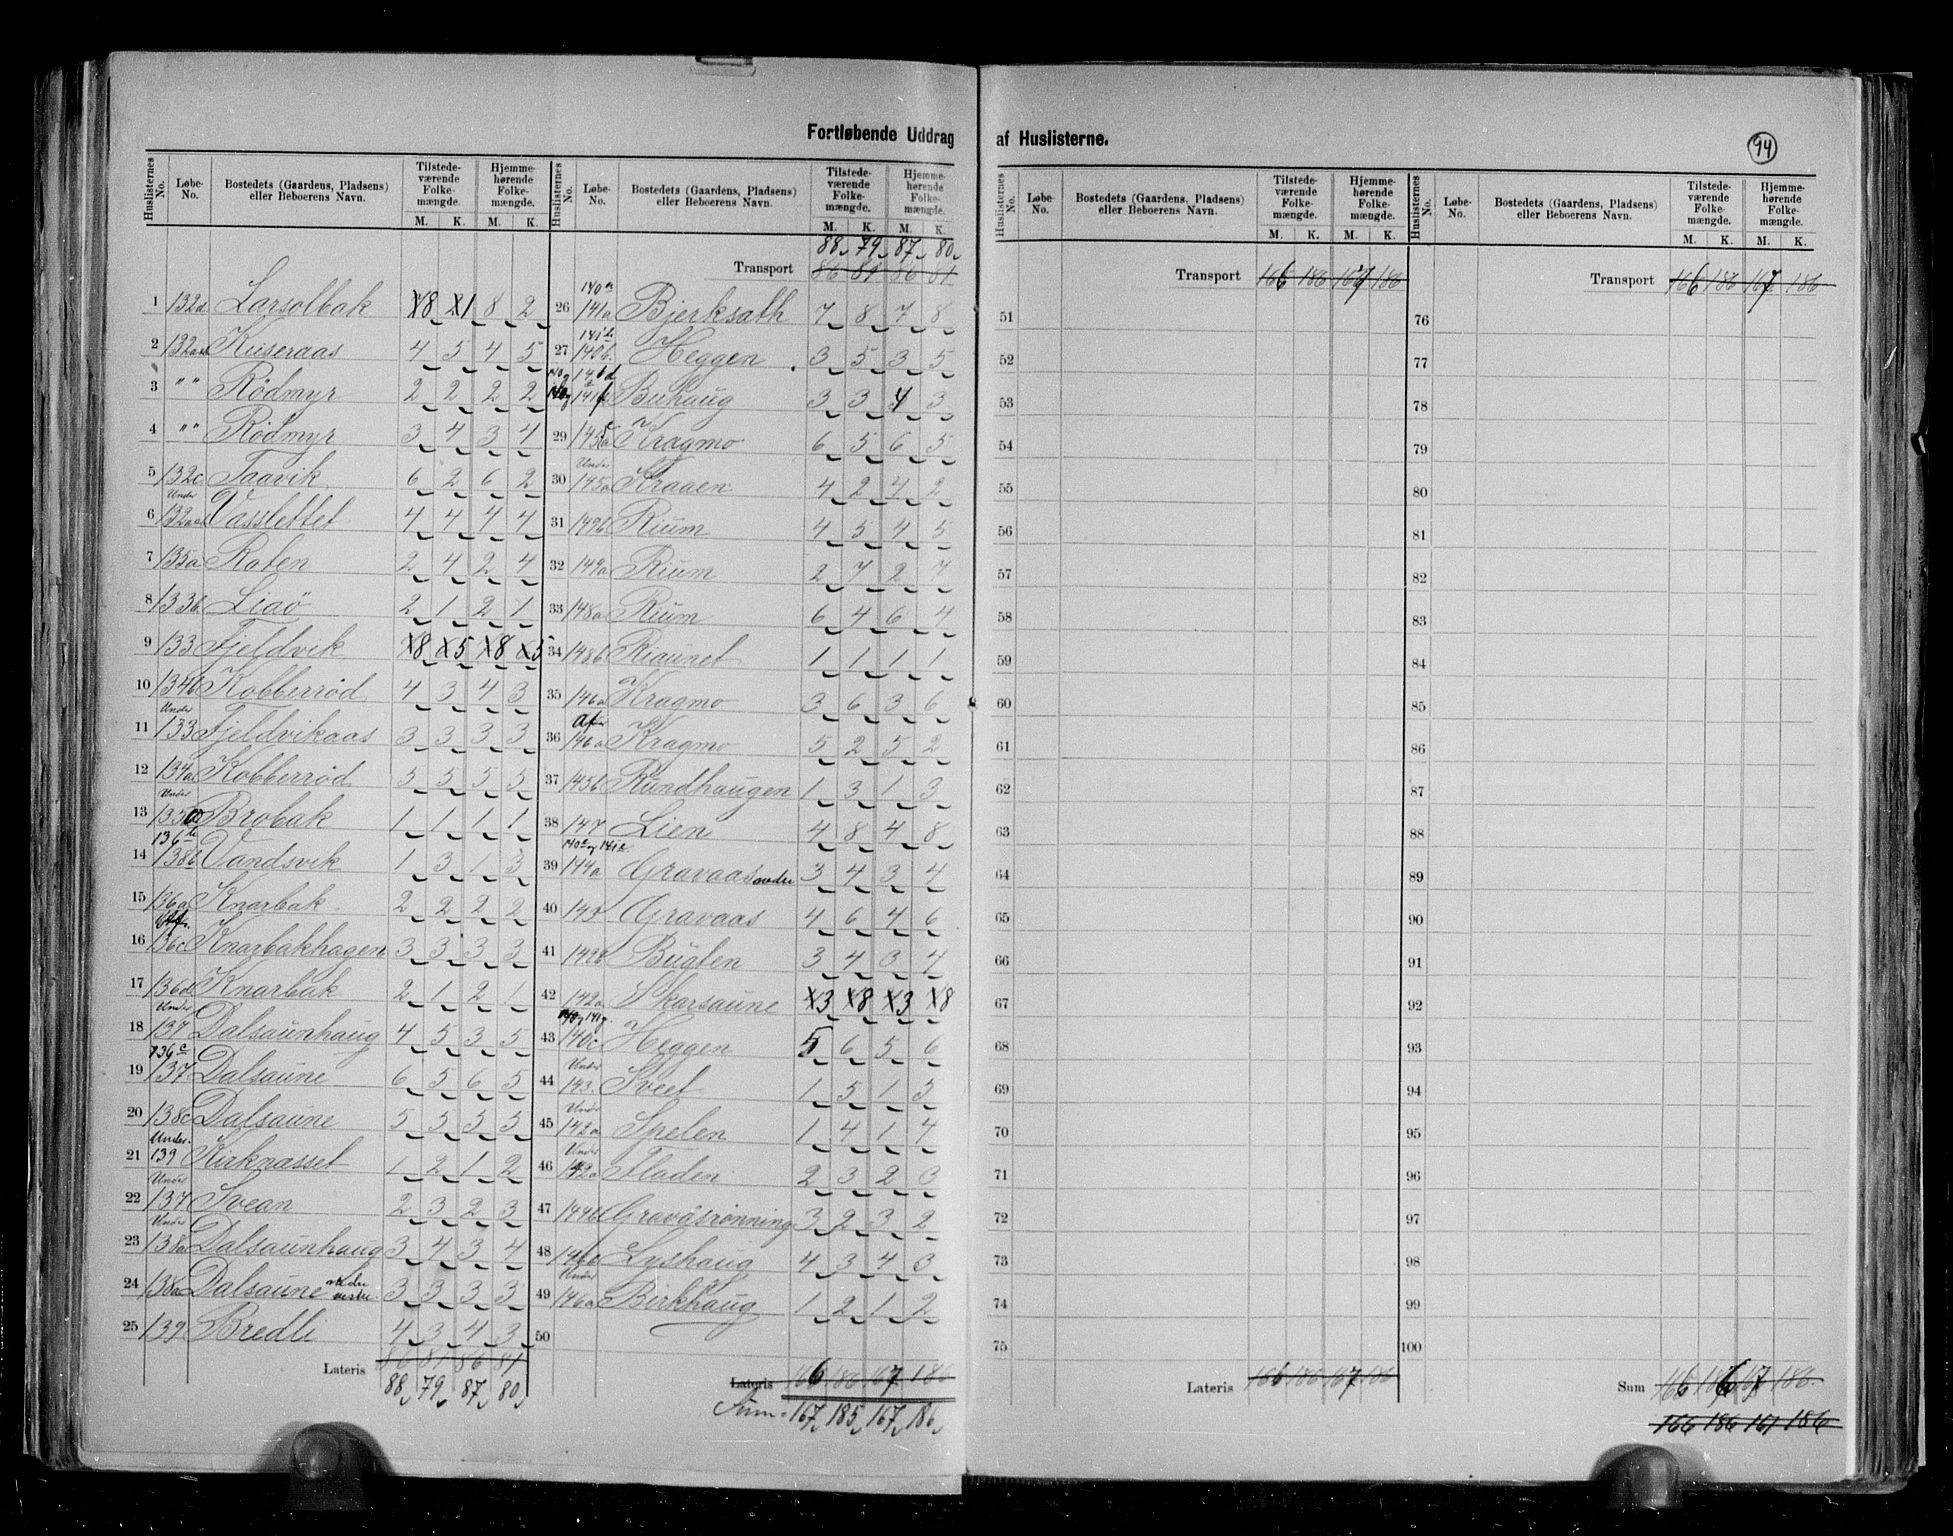 Fortløbende Uddrag af Huslisterne.
94
Huslisternes No. Løbe-No. Bostedets (Gaardens, Pladsens) eller Beboerens Navn. Tilstedeværende Folkemængde. M. K. Hjemmehørende Folkemængde. M. K.
1 132d Larsolbak 8 1 8 2
2 Kuseraas 4 5 4 5
3 " " Rødmyr 2 2 2 2
4 " " Rødmyr 3 4 3 4
5 132c Taavik 6 2 6 2
6 Under Vasslettet 4 4 4 4
7 135a Roten 2 4 2 4
8 133b Liaö 2 1 2 1
9 133 Fjeldvik 8 5 8 5
10 134b Kobberrød 4 3 4 3
11 Under 133 Fjeldvikaas 3 3 3 3
12 134a Kobberrød 5 5 5 5
13 Under 135a Brobak 1 1 1 1
14 136b 138b Vandsvik 1 3 1 3
15 136a Knarbak 2 2 2 2
16 136c Knarbakhagen 3 3 3 3
17 136d Knarbak 2 1 2 1
18 Under 137 Dalsaunhaug 4 5 3 5
19 136c 137 Dalsaune 6 5 6 5
20 138c Dalsaune 5 5 5 5
21 Under 139 Kirknæsset 1 2 1 2
22 Under 137 Svean 2 3 2 3
23 Under 138a Dalsaunhaug 3 4 3 4
24 138a Dalsaune 3 3 3 3
25 139 Bredli 4 3 4 3
Lateris 86 81 86 81
88 79 87 80
Huslisternes No. Løbe-No. Bostedets (Gaardens, Pladsens) eller Beboerens Navn. Tilstedeværende Folkemængde. M. K. Hjemmehørende Folkemængde. M. K.
88 79 87 80
Transport 86 81 86 81
26 140a 141a Bjerksath 7 8 7 8
27 141b 140b Heggen 3 5 3 5
Buhaug 3 3 4 3
29 145a Kragmo 6 5 6 5
30 Under 145a Kraaen 4 2 4 2
31 149b Rium 4 5 4 5
32 149a Rium 2 7 2 7
33 148a Rium 6 4 6 4
34 148b Riaunet 1 1 1 1
35 146a Kragmo 3 6 3 6
36 Af 146a Kragmo 5 2 5 2
37 145b Rundhaugen 1 3 1 3
38 147 Lien 4 8 4 8
39 144a Gravaas nedre 3 4 3 4
40 143 Gravaas 4 6 4 6
41 142b Bugten 3 4 3 4
42 142a Skarsaune 3 8 3 8
43 140c Heggen 5 6 5 6
44 Under 143 Sveet 1 5 1 5
45 Under 142a Spelen 1 4 1 4
46 Under 142a Fladen 2 3 2 3
47 144b Gravåsrønning 3 2 3 2
48 146b Lyshaug 4 3 4 3
49 Under 146a Birkhaug 1 2 1 2
50
Lateris 166 186 167 186
Sum = 167 185 167 186
Huslisternes No. Løbe-No. Bostedets (Gaardens, Pladsens) eller Beboerens Navn. Tilstedeværende Folkemængde. M. K. Hjemmehørende Folkemængde. M. K.
Transport 166 186 167 186
51
52
53
54
55
56
57
58
59
60
61
62
63
64
65
66
67
68
69
70
71
72
73
74
75
Lateris 166 186 167 186
Huslisternes No. Løbe-No. Bostedets (Gaardens, Pladsens) eller Beboerens Navn. Tilstedeværende Folkemængde. M. K. Hjemmehørende Folkemængde. M. K.
Transport 166 186 167 186
76
77
78
79
80
81
82
83
84
85
86
87
88
89
90
91
92
93
94
95
96
97
98
99
100
Sum 166 186 167 186
166 186 167 186